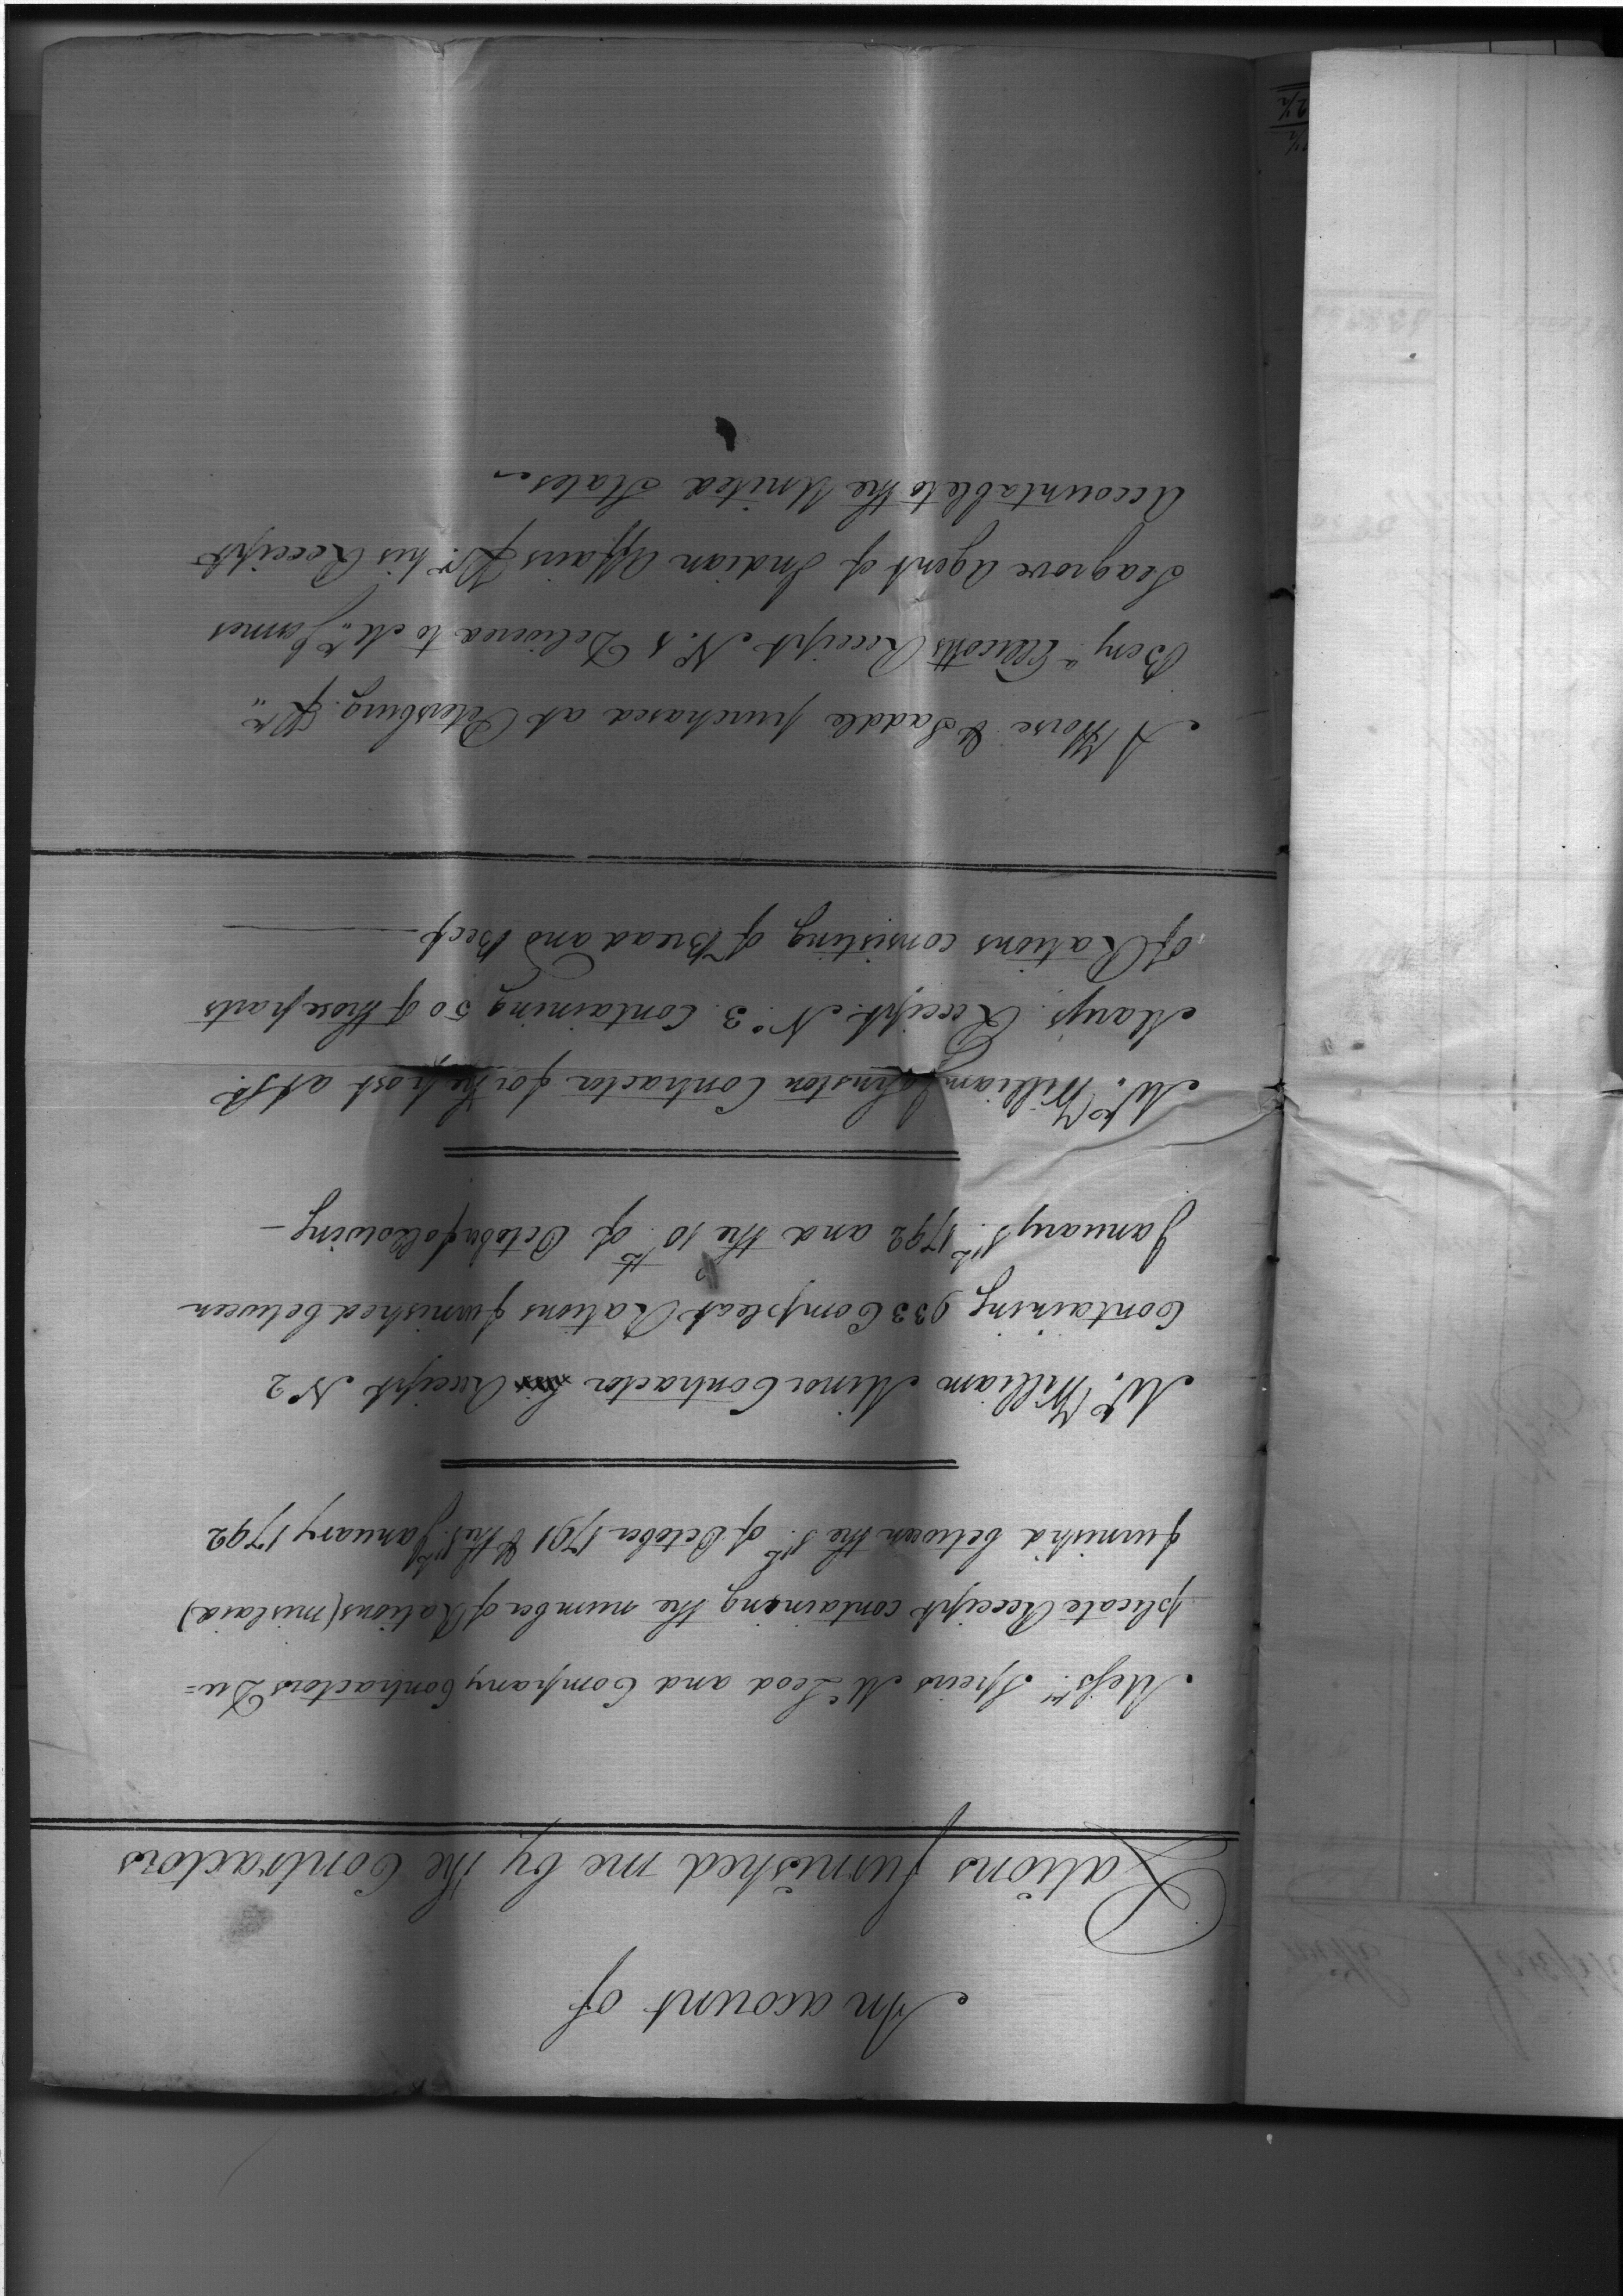 An acount of
Rations furnished me by the Contractors
Messrs. Speirs McLeod and Company Contractors Du=
plicate Receipt containing the number of Rations (mislaid)
furnish'd between the 1st. of October 1791 & the 1st. January 1792
Mr. William Minor Contractor his Receipt No 2
Containing 933 Compleat Rations furnished between
January 1st. 1792 and the 10th of October following –
Mr. William Johnston Contractor for the post at St.
Marys. Receipt No. 3. Containing 50 of those parts
of Rations consisting of Bread and Beef
A Horse & Saddle purchased at Petersburg. Pr.
Benjn. Ellicotts Receipt No. 5 Delivered to Mr. James
Seagrove Agent of Indian Affairs Pr. his Receipt
Accountable to the United States –